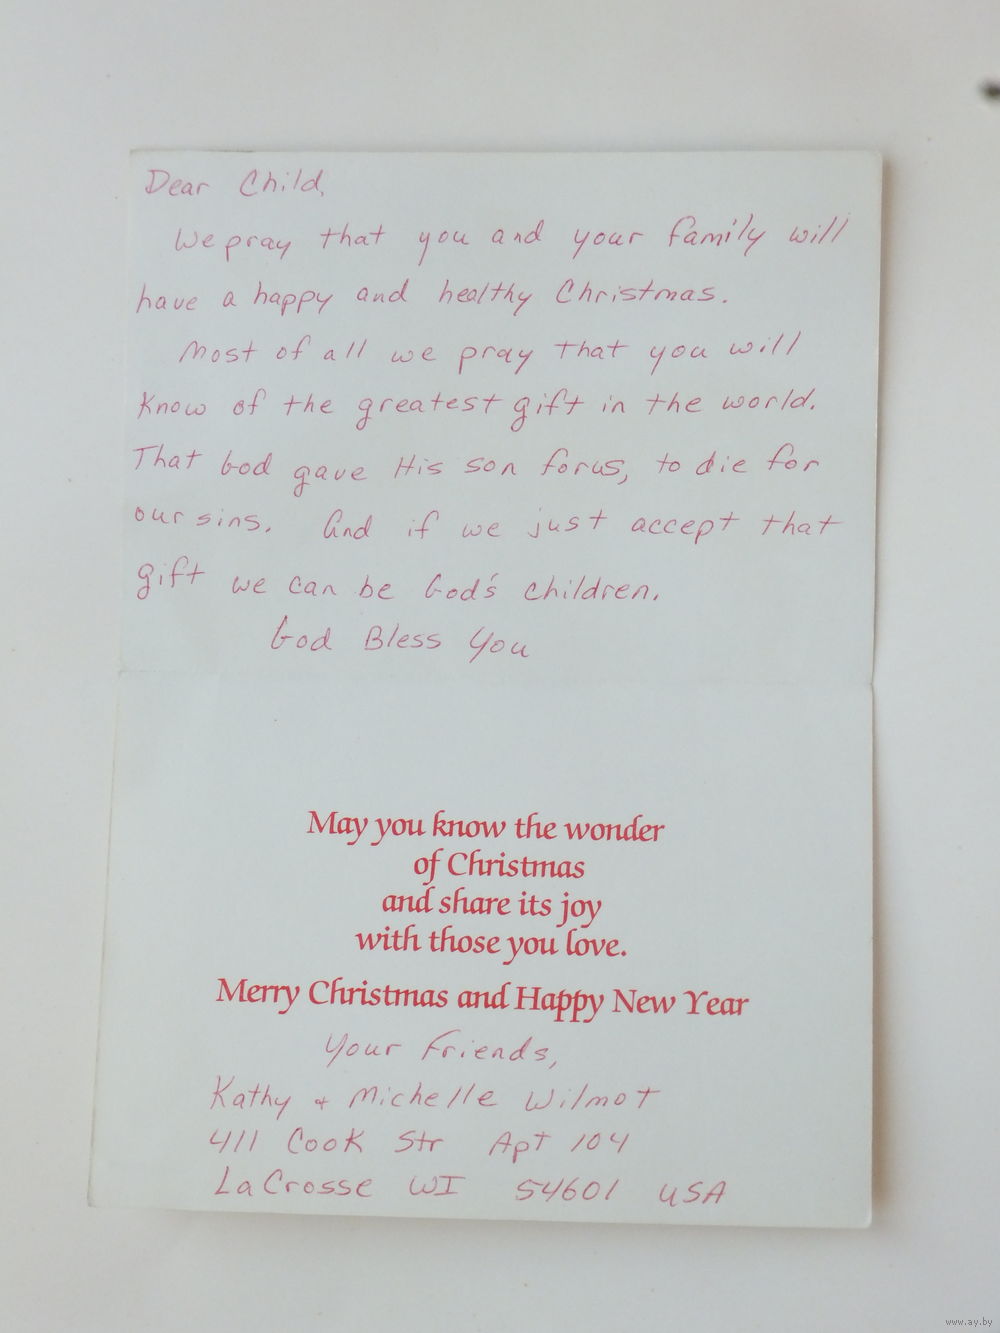 Dear Child,
We pray that you and your family will
have a happy and healthy Christmas.
Most of all we pray that you will
Know of the greatest gift in the world.
That God gave His son for us, to die for
our sins. And if we just accept that
gift we can be God's children.
God Bless You
May you know the wonder
of Christmas
and share its joy
with those you love.
Merry Christmas and Happy New Year
Your Friends,
Kathy & Michelle Wilmot
411 Cook Str Apt 104
LaCrosse WI 54601 USA
www.ay.by